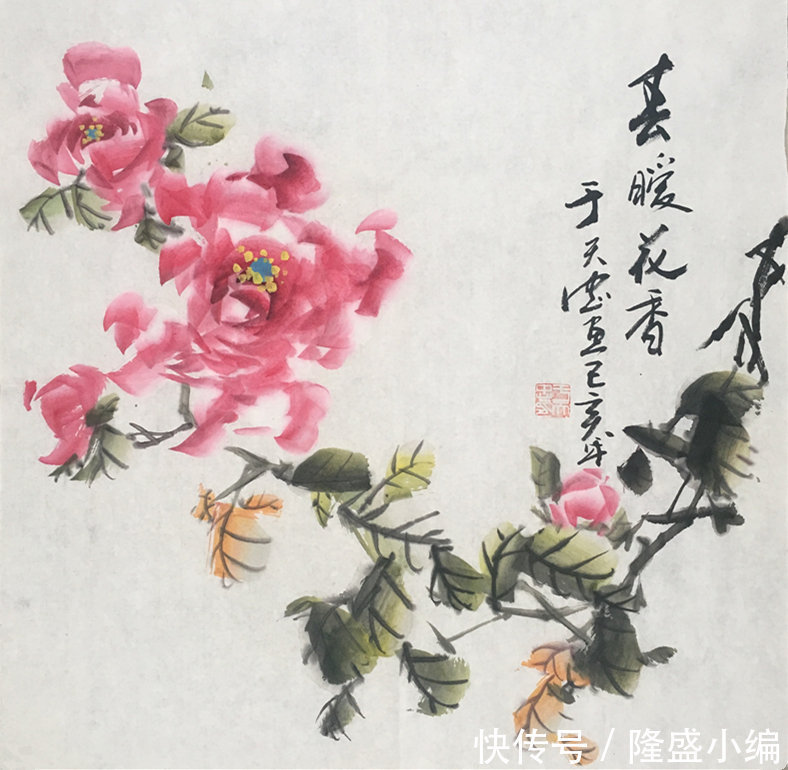 春暖花香
于天忠画己亥年
快传号 / 隆盛小编